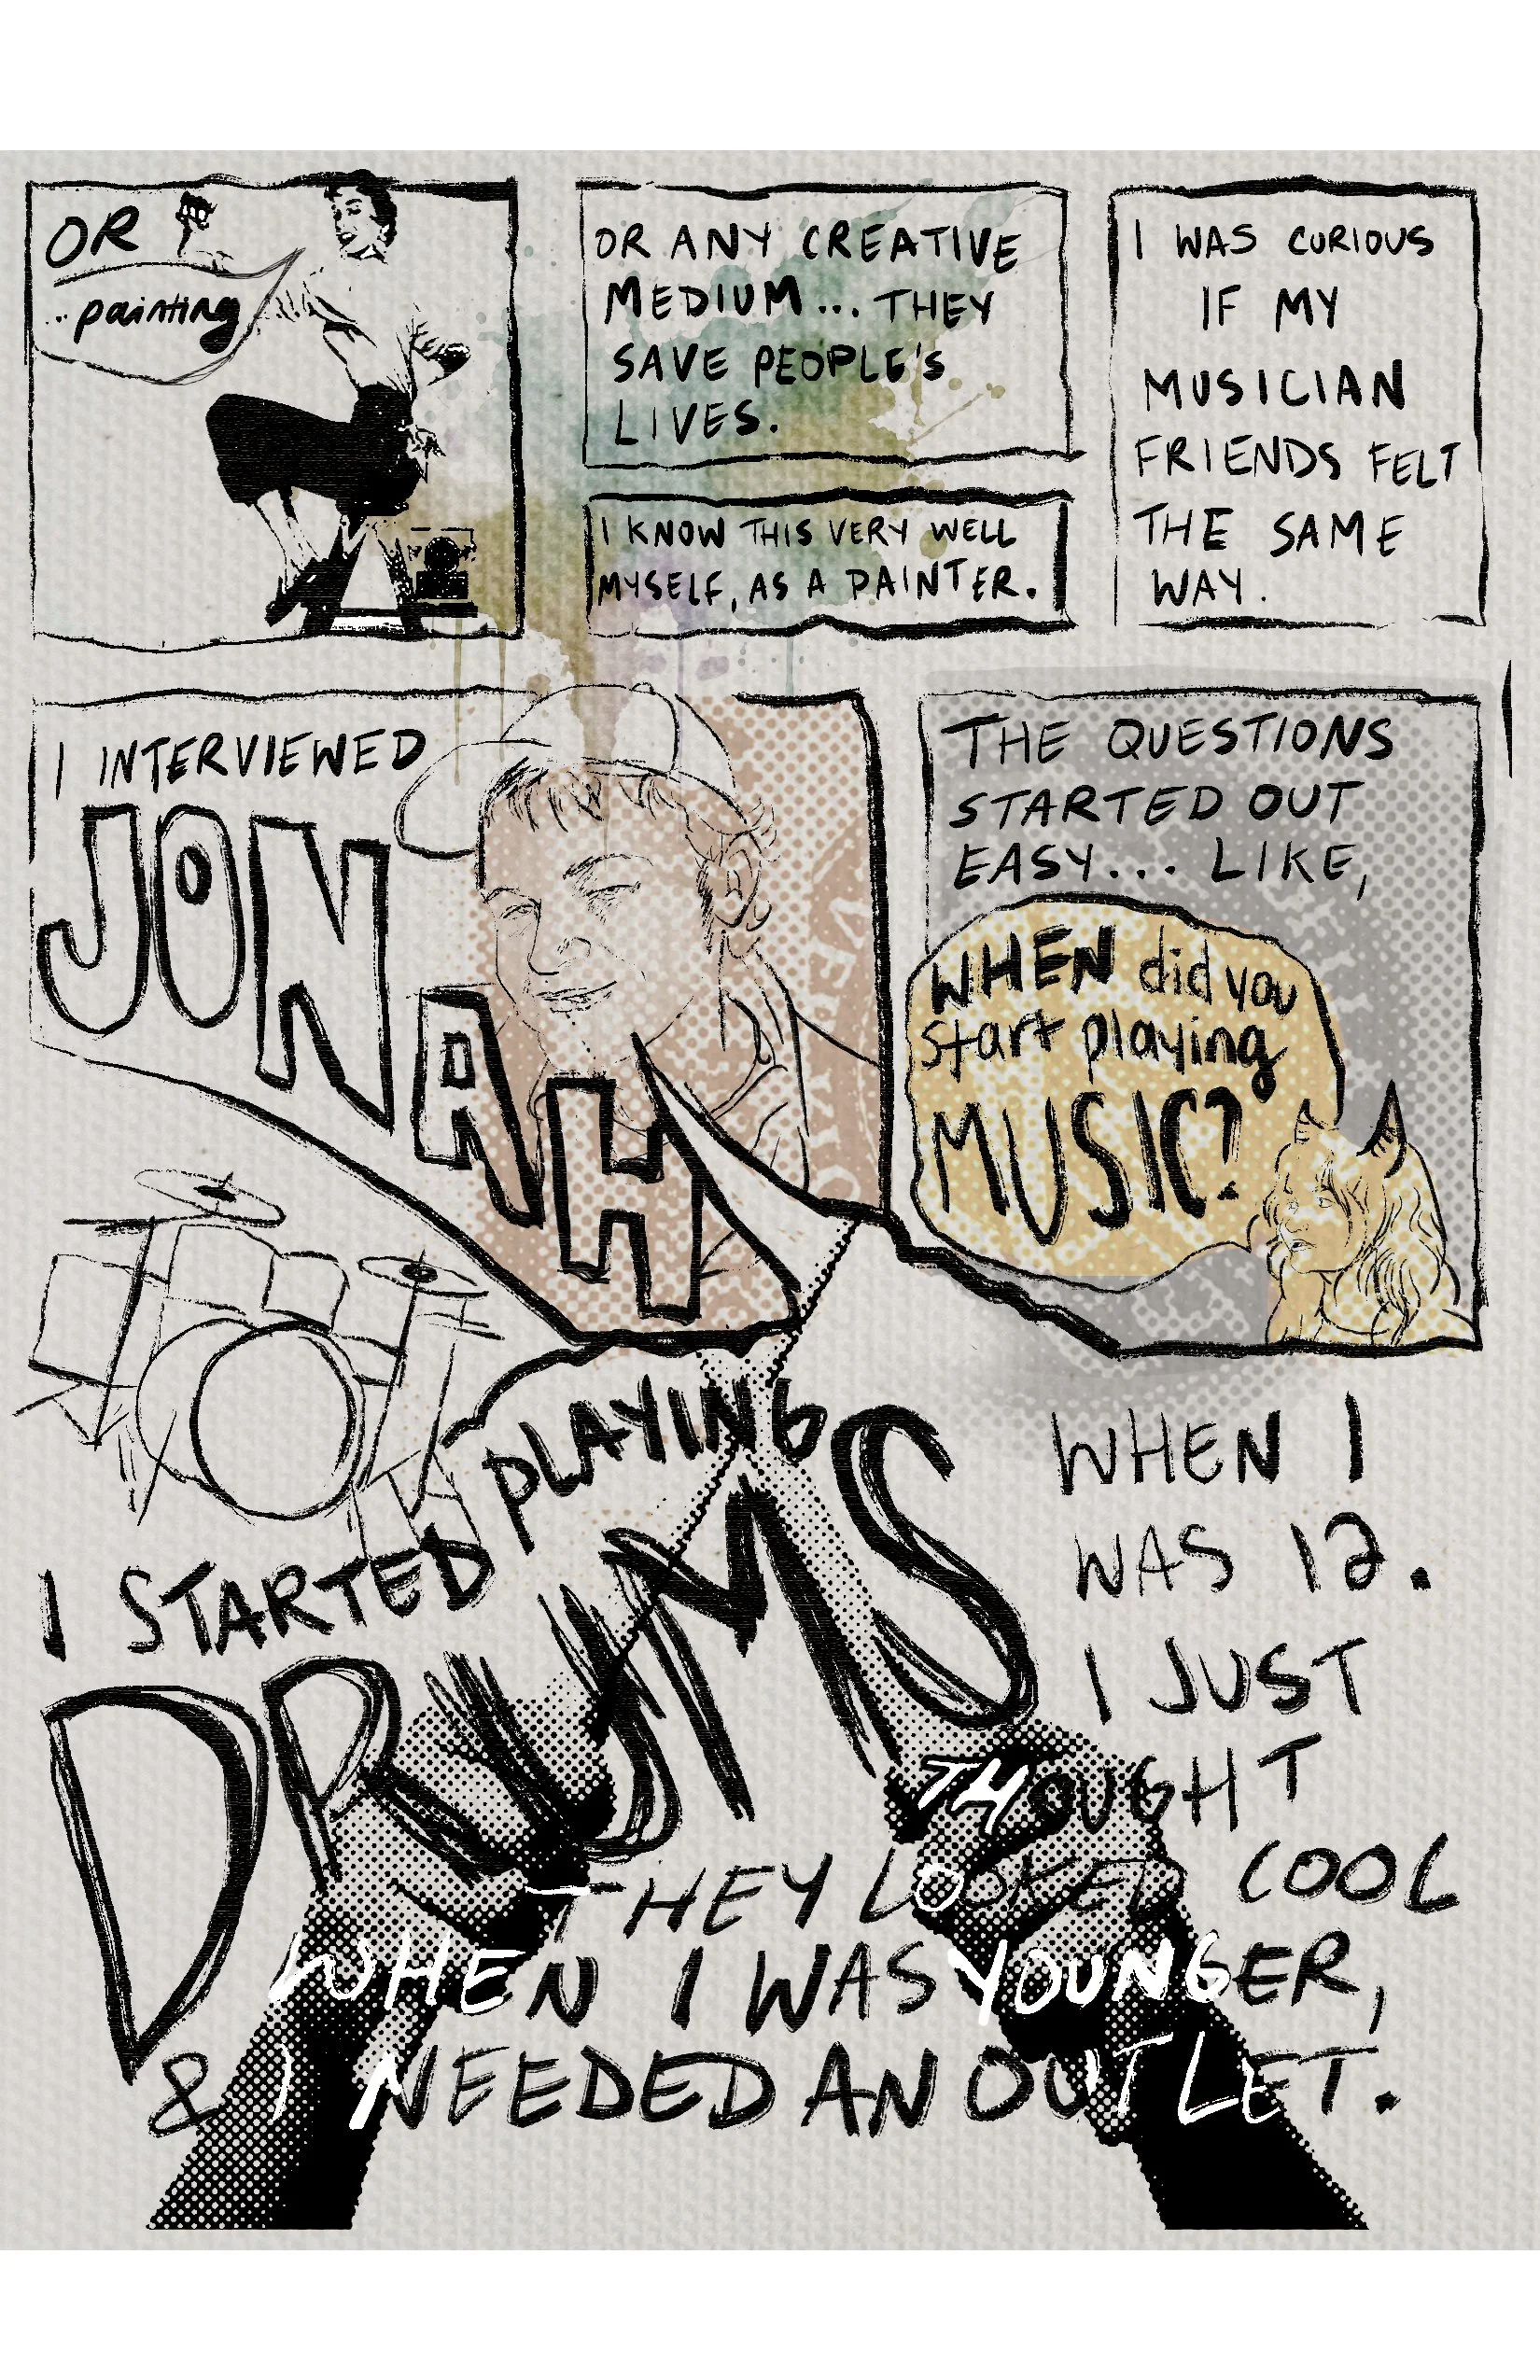 OR
..painting
OR ANY CREATIVE
MEDIUM... THEY
SAVE PEOPLE'S
LIVES.
I KNOW THIS VERY WELL
MYSELF, AS A PAINTER.
I WAS CURIOUS
IF MY
MUSICIAN
FRIENDS FELT
THE SAME
WAY.
I INTERVIEWED
JONAH
THE QUESTIONS
STARTED OUT
EASY... LIKE,
WHEN did you
start playing
MUSIC?
I STARTED PLAYING
DRUMS
WHEN I
WAS 12.
I JUST
THOUGHT
THEY LOOKED COOL
WHEN I WAS YOUNGER,
& I NEEDED AN OUTLET.